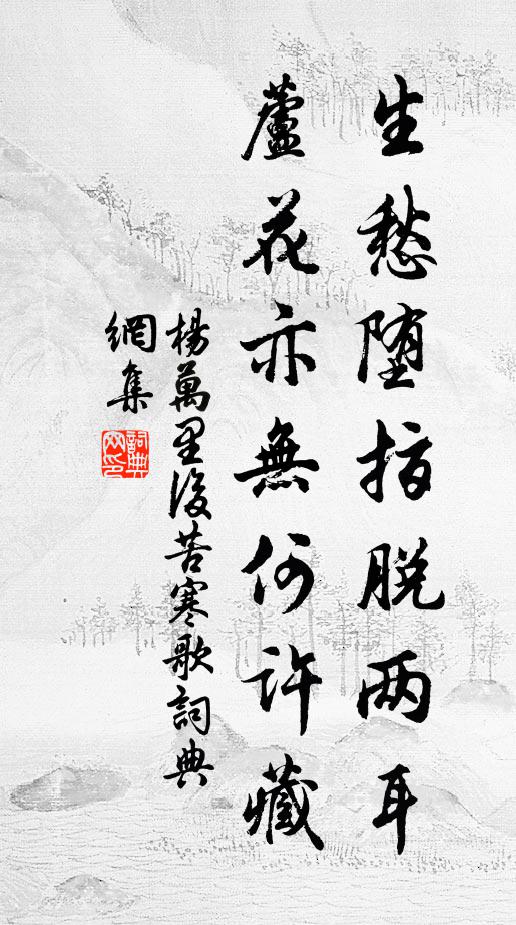 生愁堕指脱两耳
蘆花亦無何許藏
楊萬里後苦寒歌詞典
網集
詞典网印